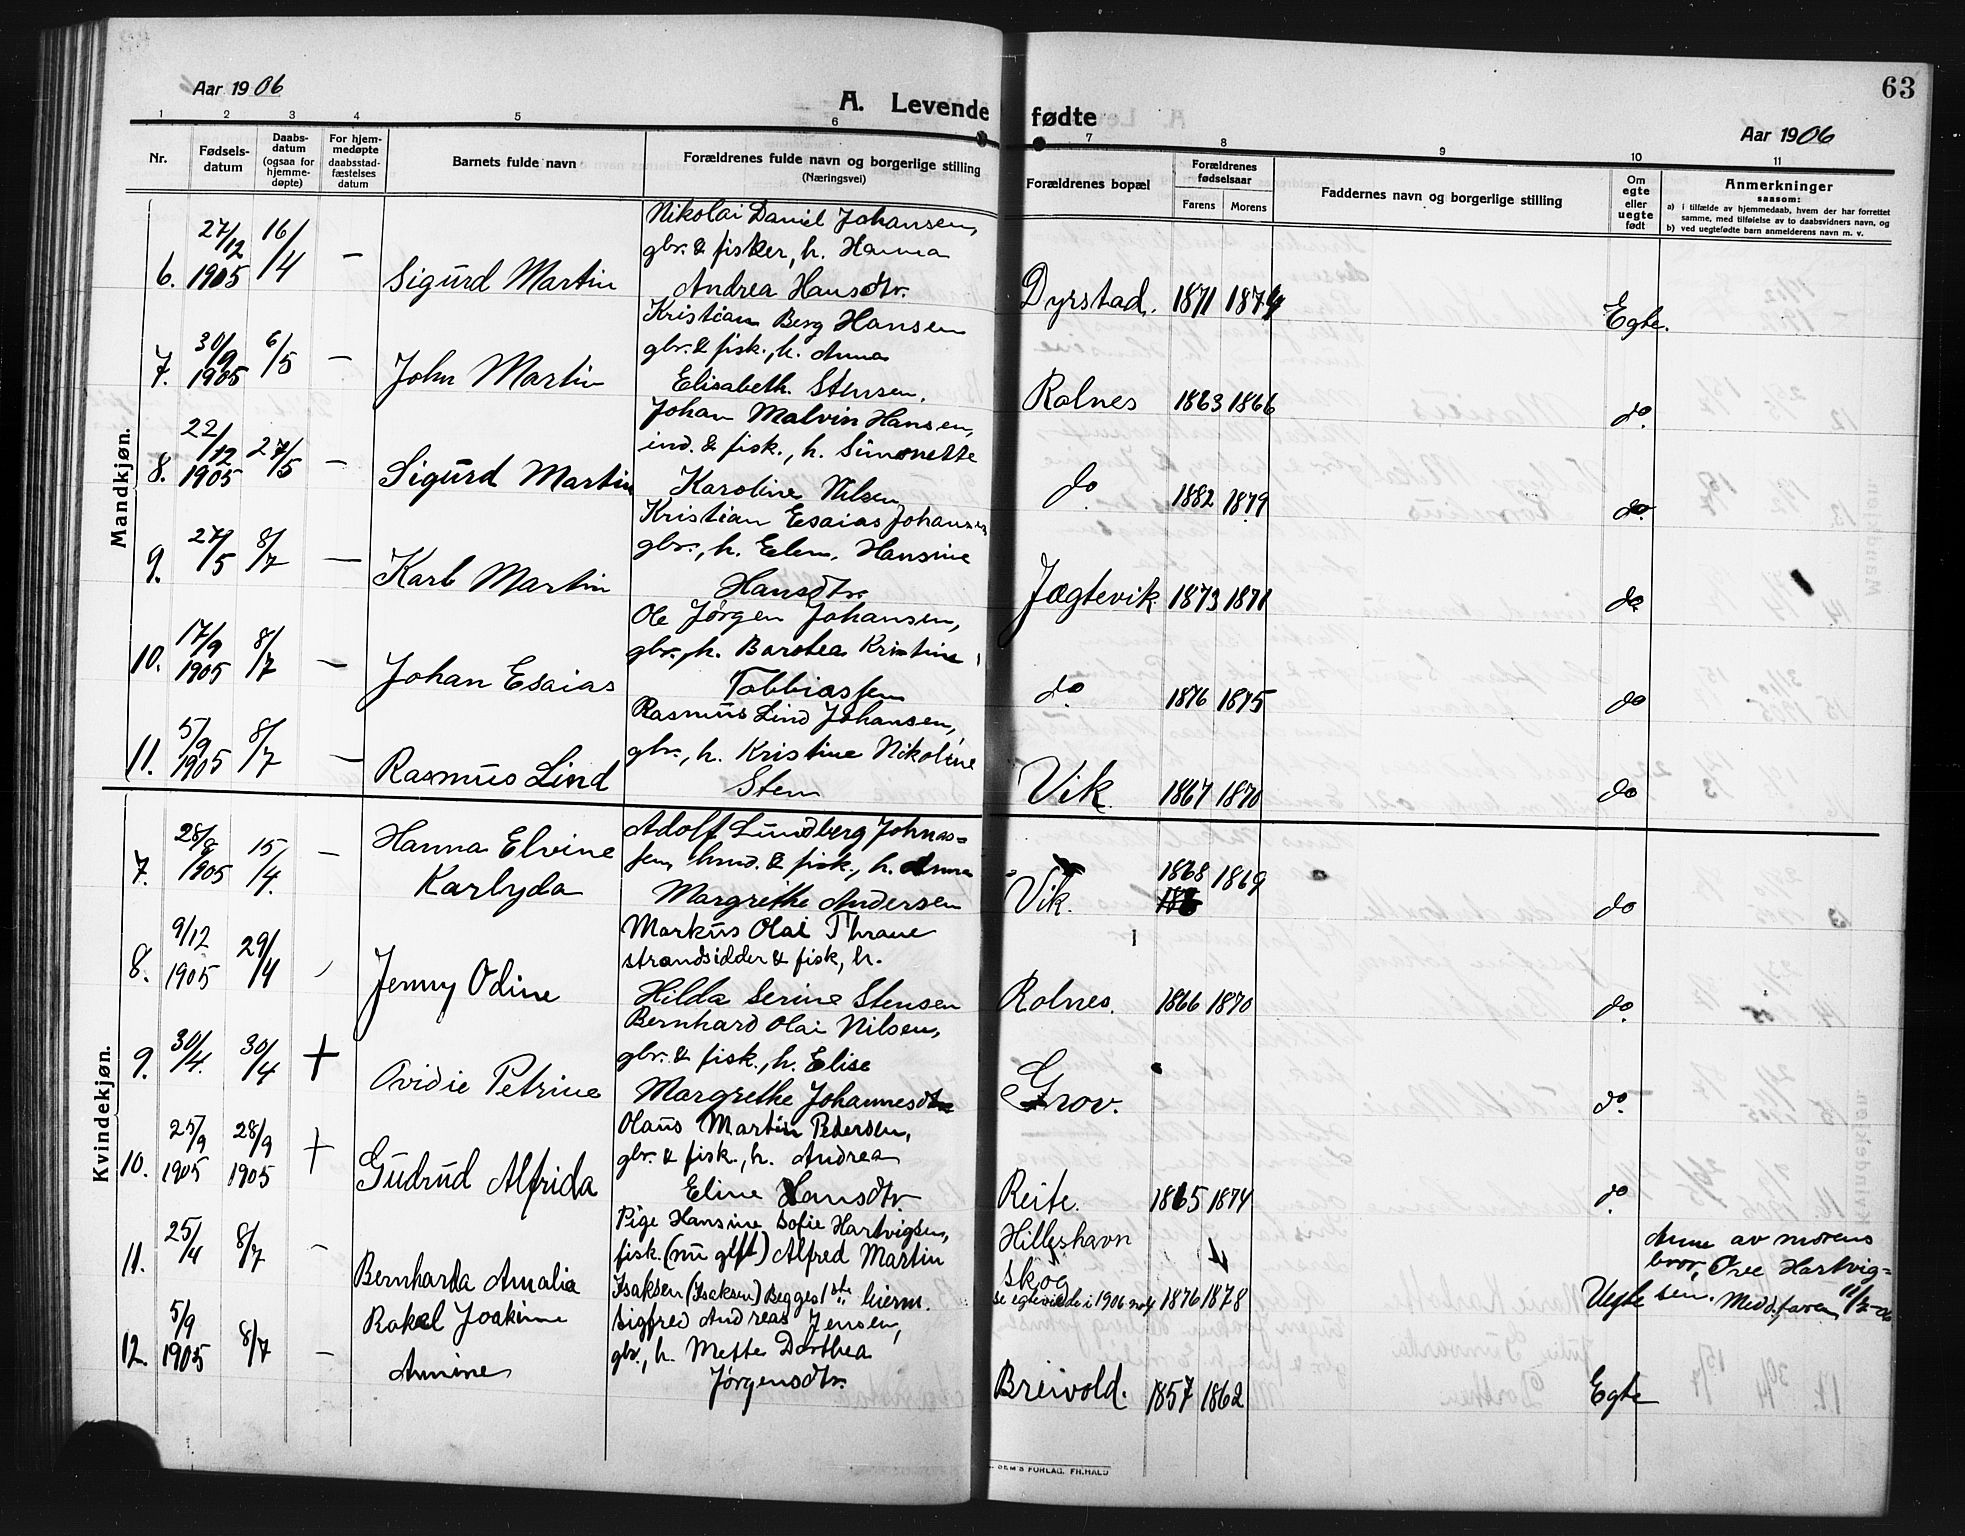 63
Aar 1906
A. Levende fødte
Aar 1906
1 2 3 4 5 6 7 8 9 10 11
Nr.
Fødsels-
datum
Daabs-
datum
(ogsaa for
hjemme-
døpte)
For hjem-
medøpte
daabsstad-
fæstelses
datum
Barnets fulde navn
Forældrenes fulde navn og borgerlige stilling
(Næringsvei)
Forældrenes bopæl
Forældrenes
fødselsaar
Farens Morens
Faddernes navn og borgerlige stilling
Om
egte
eller
uegte
født
Anmerkninger
saasom:
a) i tilfælde av hjemmedaab, hvem der har forrettet
samme, med tilføielse av to daabsvidners navn, og
b) ved uegtefødte barn anmelderens navn m. v.
Mandkjøn.
6. 27/12 1905 16/4 – Sigurd Martin
Nikolai Daniel Johansen,
gbr. & fisker, h. Hanna
Andrea Hansdtr.
Dyrstad. 1871 1874 Egte.
7. 30/9 1905 6/5 – John Martin
Kristian Berg Hansen
gbr. & fisk., h. Anna
Elisabeth Stensen.
Rolnes 1863 1866 do.
8. 22/12 1905 27/5 – Sigurd Martin
Johan Malvin Hansen,
ind. & fisk., h. Simonette
Karoline Nilsen
do. 1882 1879 do
9. 27/5 8/7 – Karl Martin
Kristian Esaias Johansen
gbr., h. Elen Hansine
Hansdtr.
Jægtevik 1873 1871 do
10. 17/9 1905 8/7 – Johan Esaias
Ole Jørgen Johansen,
gbr., h. Barolea Kristine
Tobbiassen
do 1876 1875 do
11. 5/9 1905 8/7 – Rasmus Lind
Rasmus Lind Johansen,
gbr., h. Kristine Nikoline
Sten
Vik 1867 1870 do
Kvindekjøn.
7. 28/8 1905 15/4. – Hanna Elvine
Karlyda
Adolf Lundberg Johnas-
sen, hmd. & fisk., h. Anna
Margrethe Andersen
Vik. 1868 1869 do
8. 9/12 1905 29/4 – Jenny Odine
Markus Olai Thrane
strandsidder & fisk, h.
Hilda Serine Stensen
Rolnes. 1866 1870 do.
9. 30/4. 30/4 + Ovidie Petrine
Bernhard Olai Nilsen,
gbr. & fisk., h. Elise
Margrethe Johannesdtr
Grov. do.
10. 25/9 1905 28/9 1905 + Gudrud Alfrida
Olaus Martin Pedersen,
gbr. & fisk., h. Andrea
Eline Hansdtr.
Reite. 1865 1874 do.
11. 25/4 8/7 – Bernharda Amalia
Pige Hansine Sofie Hartvigsen,
fisk. (nu gift) Alfred Martin
Isaksen (Isaksen) Begges 1ste leierm.
Hilleshavn
skog
se egteviede i 1906 no 4 1876 1878 Uegte
Anm av morens
bror, Ove Hartvig-
sen. Medd. faren 12/5-06
12. 5/9 1905 8/7 – Rakel Joakime
Annine
Sigfred Andreas Jensen,
gbr., h. Mette Dorthea
Jørgensdtr.
Breivold. 1857 1862 Egte
SEM'S FORLAG, FR.HALD